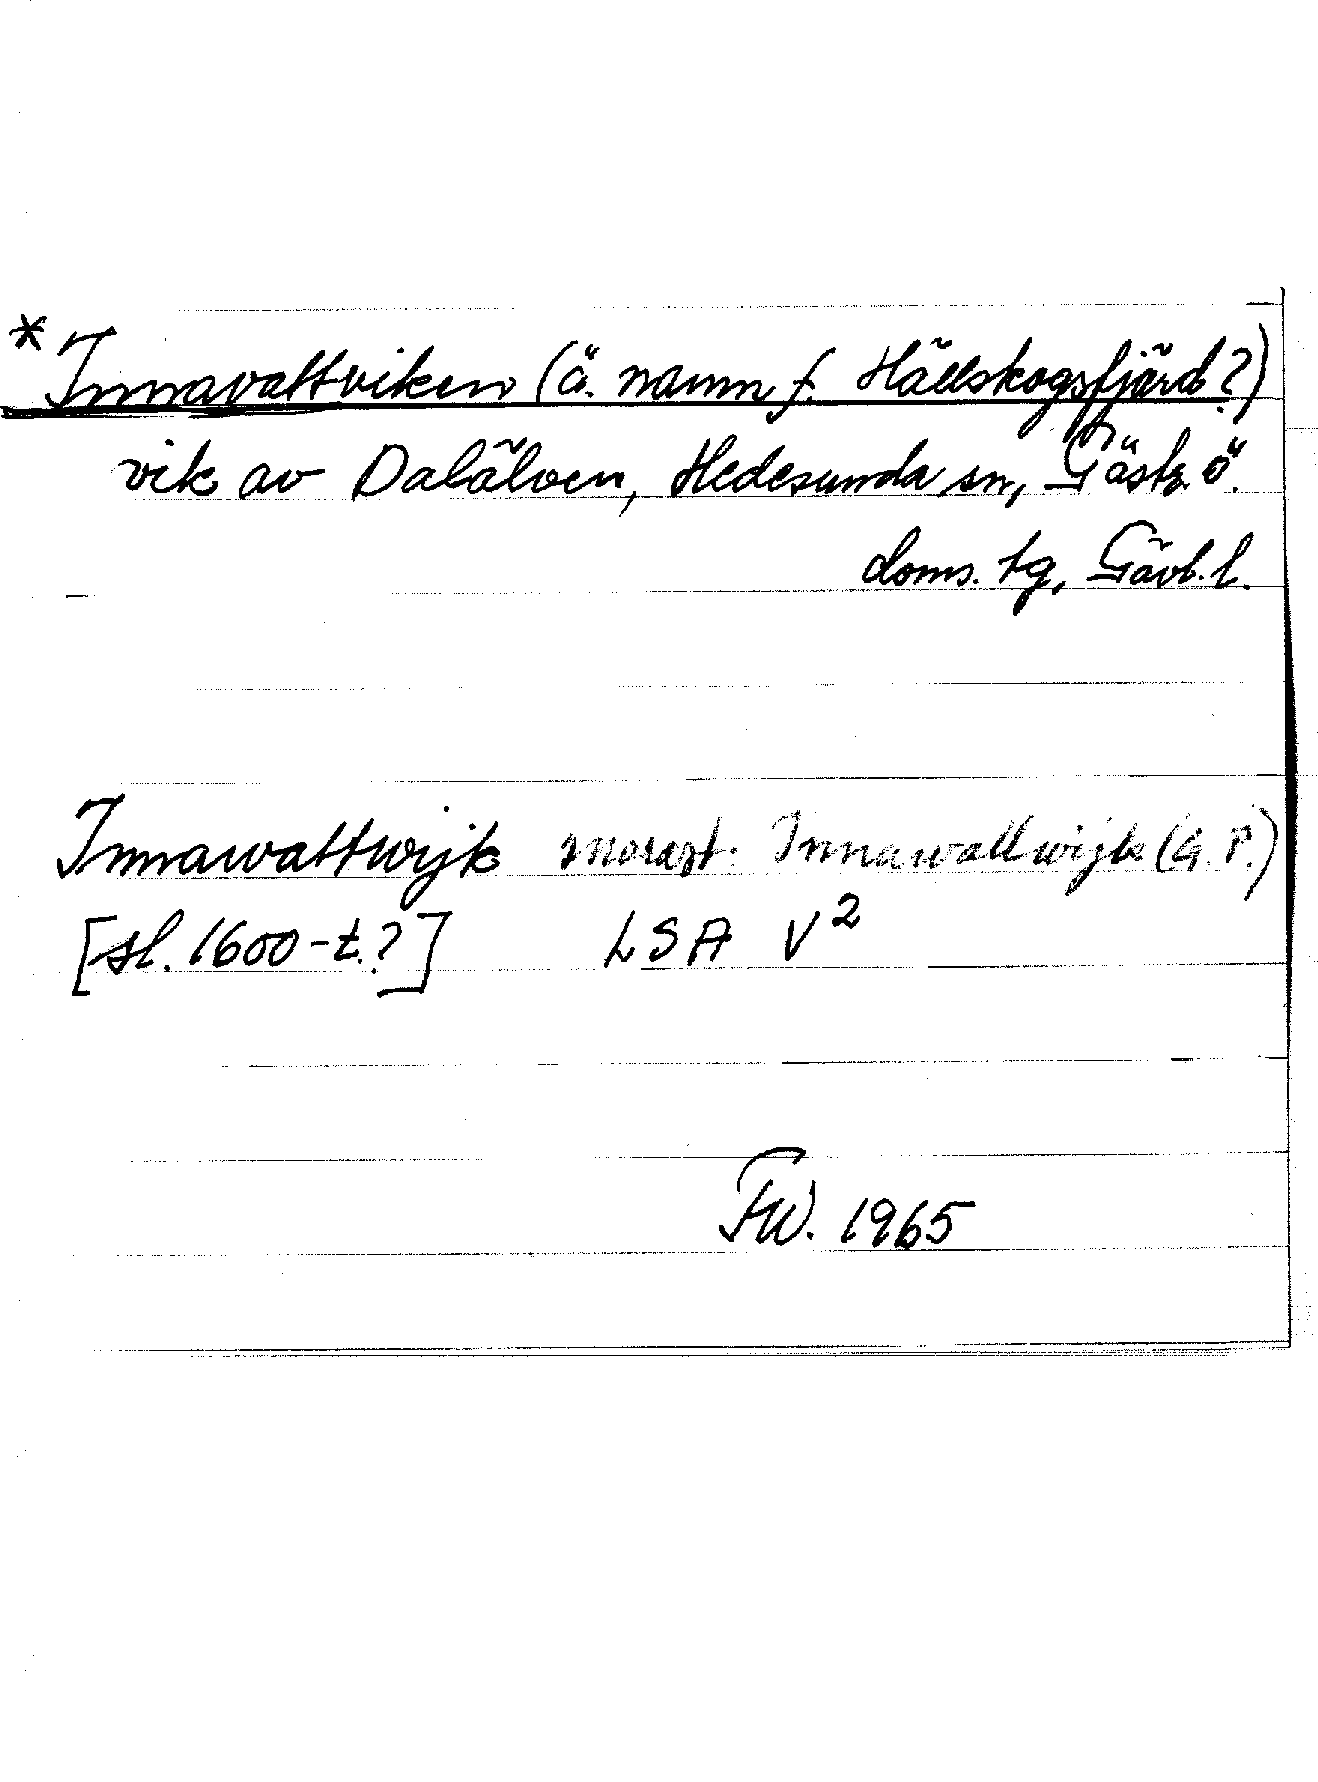 * Innavattviken (ä. namn f. Hällskogsfjärd?)
vik av Dalälven, Hedesunda sn, Gästr. ö.
doms. tg, Gävl. l.
Innawattwijk morast. Innawattwijk (G. P.)
[sl. 1600-t.?] LSA V²
FW. 1965